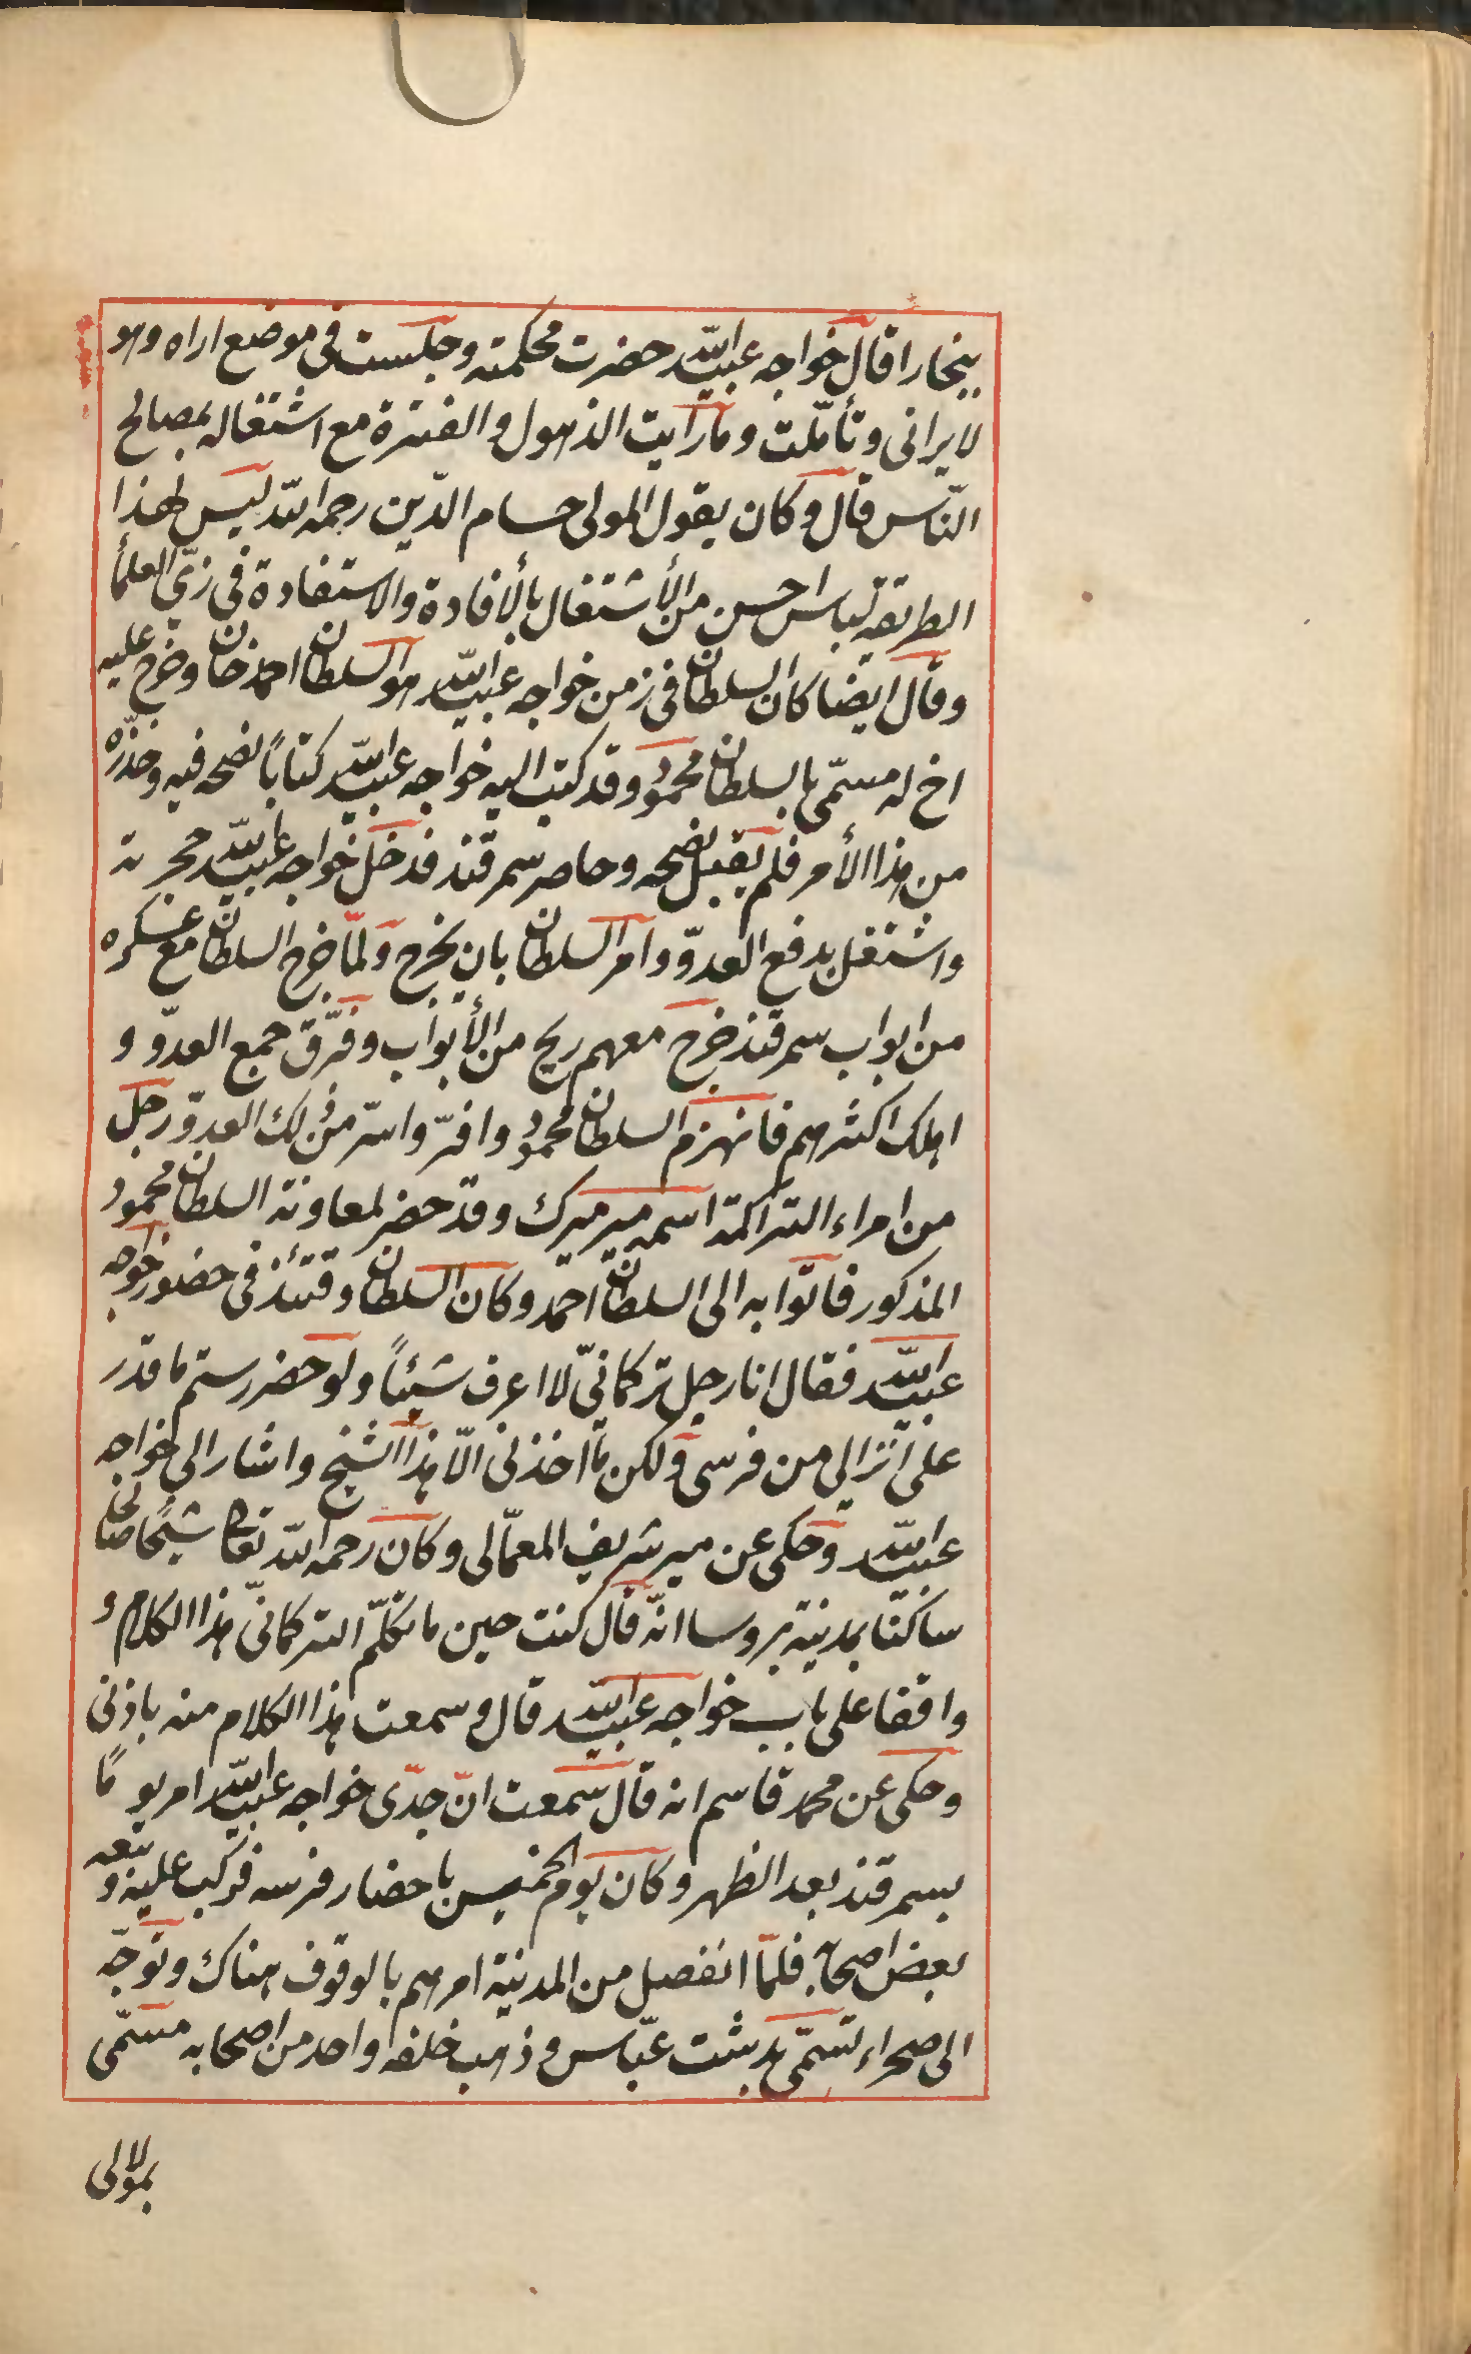 ببخارا قال خواجه عبيد الله حضرت محكمته وجلست فى موضع اراه وهو
لا يرانى وتأمّلت وما رايت الذهول والفترة مع اشتغاله بمصالح
النّاس قال وكان يقول المولى حسام الدّين رحمه الله ليس لهذا
الطريقة لباس احسن من الأشتغال بالأفادة والاستفادة فى زىّ العلمأ
وقال ايضا كان السلطان فى زمن خواجه عبيد الله هو السلطان احمد خان وخرج عليه
اخ له مسمّى بالسلطان محمود وقد كتب اليه خواجه عبيد الله كتاباً نصحه فيه وحذّره
من هذا الأمر فلم يقبل نصحه وحاصر سمرقند فدخل خواجه عبيد الله حجرته
واشتغل بدفع العدوّ وامر السلطان بان يخرج ولمّا خرج السلطان مع عسكره
من ابواب سمرقند خرج معهم ريح من الأبواب وفرّق جمع العدوّ و
اهلك اكثرهم فانهزم السلطان محمود وافرّ واسّر من ذلك العدوّ رجل
من امراء التراكمة اسمه مير ميرك وقد حضر لمعاونة السلطان محمود
المذكور فاتوا به الى السلطان احمد وكان السلطان وقتئذ فى حضور خواجه
عبيد الله فقال انا رجل تركمانىّ لا اعرف شيئاً ولو حضر رستم ما قدر
على انزالى من فرسى ولكن ما اخذنى الّا هذا الشيخ واشار الى خواجه
عبيد الله وحكى عن مير شريف المعمّالى وكان رحمه الله تعالى شيخًا صالحا
ساكنا بمدينة بروسا انّه قال كنت حين ما تكلّم التركمانىّ هذا الكلام و
واقفا على باب خواجه عبيد الله قال وسمعت هذا الكلام منه باذنى
وحكى عن محمد قاسم انه قال سمعت انّ جدّى خواجه عبيد الله امر يومًا
بسمرقند بعد الظهر وكان يوم الخميس باحضار فرسه فركب عليه وتبعه
بعض اصحابه فلمّا انفصل من المدينة امرهم بالوقوف هناك وتوجّه
الى صحراء تسمّى بدشت عبّاس وذهب خلفه واحد من اصحابه مسمّى
بمولالى